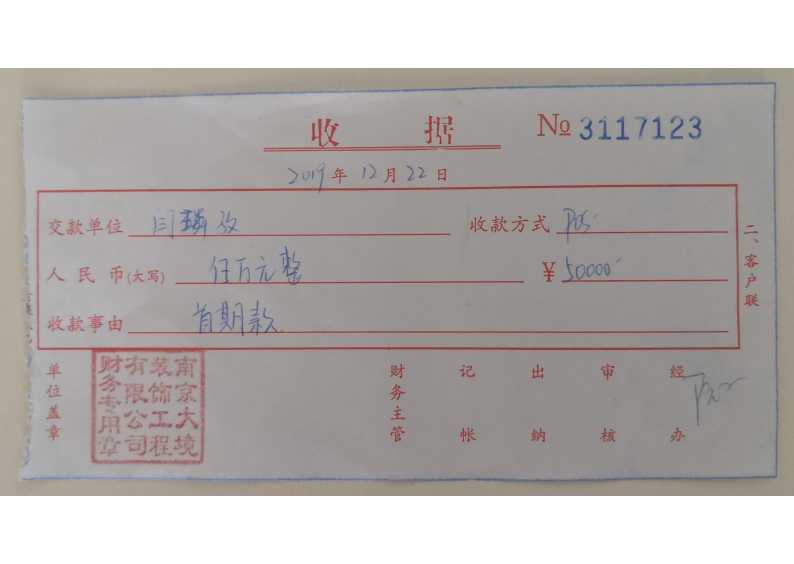 收 据 № 3117123
2019年12月22日
交款单位 闫 收款方式 POS
人民币(大写) 伍万元整 ¥50000
收款事由 首期款
二、客户联
单位盖章 财务主管 记帐 出纳 审核 经办
南京大境
装饰工程
有限公司
财务专用章